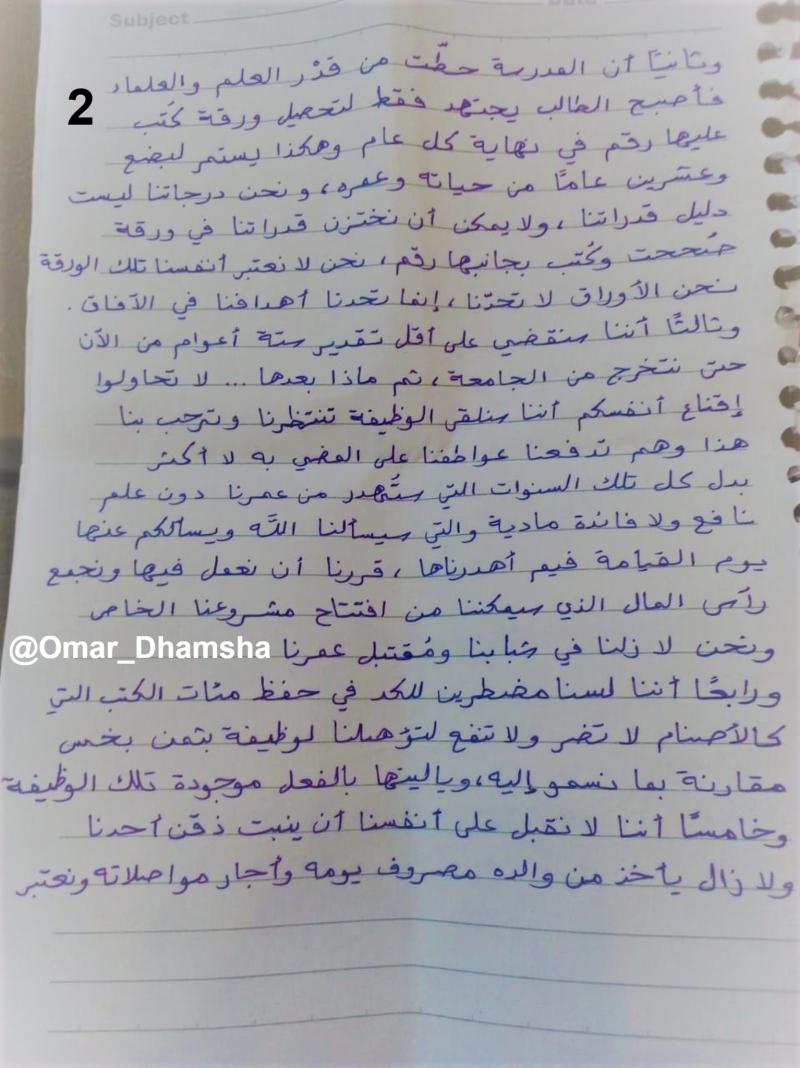 Subject
2
وثانيًا أن المدرسة حطّت من قدْر العلم والعلماء
فأصبح الطالب يجتهد فقط لتحصيل ورقة كُتب
عليها رقم في نهاية كل عام وهكذا يستمر لبضع
وعشرين عامًا من حياته وعمره، ونحن درجاتنا ليست
دليل قدراتنا، ولا يمكن أن نختزن قدراتنا في ورقة
صُححت وكُتب بجانبها رقم، نحن لا نعتبر أنفسنا تلك الورقة
نحن الأوراق لا تحدّنا، إنما تحدنا أهدافنا في الآفاق.
وثالثًا أننا سنقضي على أقل تقدير ستة أعوام من الآن
حتى نتخرج من الجامعة، ثم ماذا بعدها... لا تحاولوا
إقناع أنفسكم أننا سنلقى الوظيفة تنتظرنا وترحب بنا
هذا وهم تدفعنا عواطفنا على المضي به لا أكثر
بدل كل تلك السنوات التي ستُهدر من عمرنا دون علم
نافع ولا فائدة مادية والتي سيسألنا الله ويسألكم عنها
يوم القيامة فيم أهدرناها، قررنا أن نعمل فيها ونجمع
رأس المال الذي سيمكننا من افتتاح مشروعنا الخاص
ونحن لا زلنا في شبابنا ومُقتبل عمرنا
@Omar_Dhamsha
ورابعًا أننا لسنا مضطرين للكد في حفظ مئات الكتب التي
كالأصنام لا تضر ولا تنفع لتؤهلنا لوظيفة بثمن بخس
مقارنة بما نسمو إليه، وياليتها بالفعل موجودة تلك الوظيفة
وخامسًا أننا لا نقبل على أنفسنا أن ينبت ذقن أحدنا
ولا زال يأخذ من والده مصروف يومه وأجار مواصلاته ونعتبر